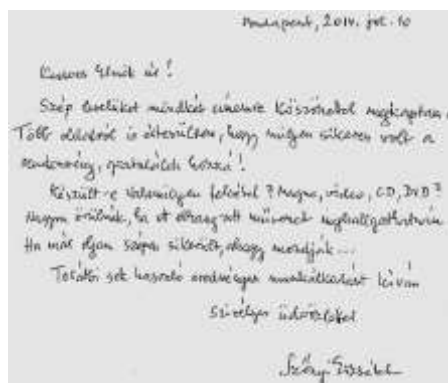 Budapest, 2014. júl. 10
Kedves Elnök úr!
Szép levelüket mindkét címemre köszönettel megkaptam.
Több oldalról is értesültem, hogy milyen sikeres volt a
rendezvény, gratulálok hozzá!
Készült-e valamilyen felvétel? Magnó, video, CD, DVD?
Nagyon örülnék, ha az elhangzott műveket meghallgathatnám
Ha már olyan szépen sikerült, ahogy mondják...
További sok hasonló eredményes munkálkodást kíván
Szívélyes üdvözlettel
Szőnyi Erzsébet